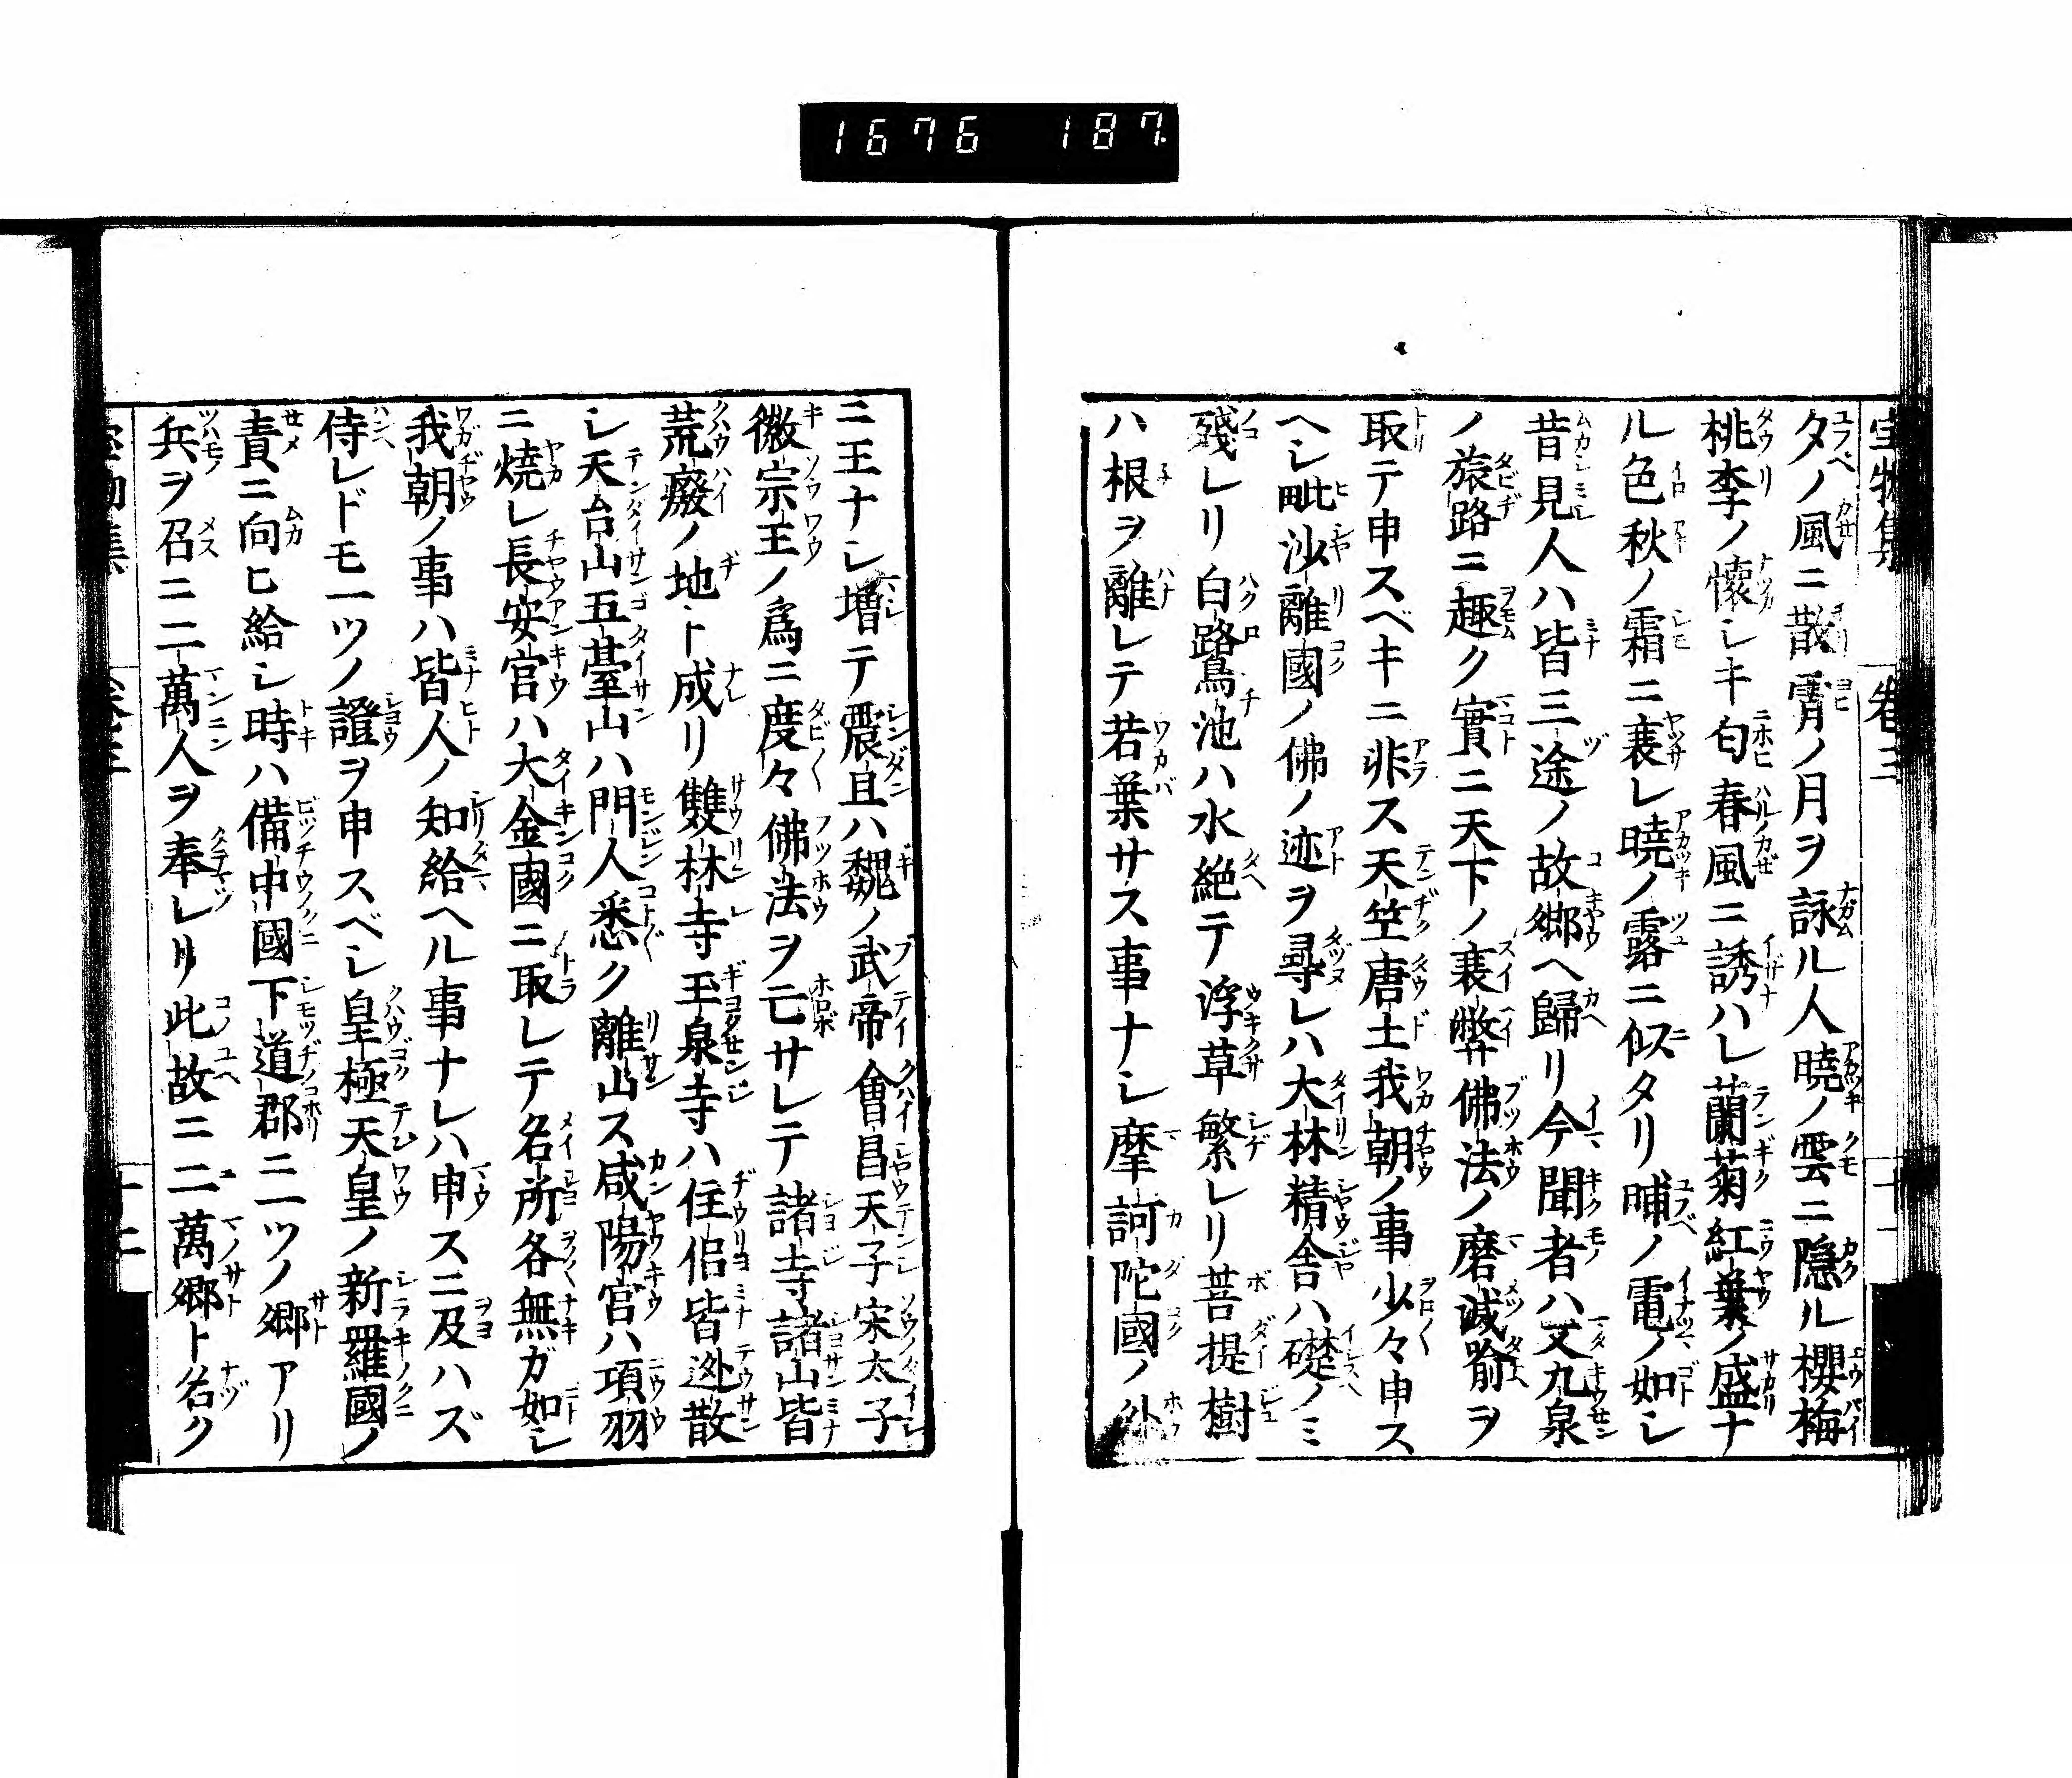 1676 187
宝物集 巻三 十一
夕ノ風ニ散霄ノ月ヲ詠ル人暁ノ雲ニ隠ル櫻梅
桃李ノ懷シキ匂春風ニ誘ハレ蘭菊紅葉ノ盛ナ
ル色秋ノ霜ニ衰レ暁ノ露ニ似タリ晡ノ電ノ如シ
昔見人ハ皆三途ノ故郷ヘ歸リ今聞者ハ又九泉
ノ旅路ニ趣ク實ニ天下ノ衰弊佛法ノ磨滅喩ヲ
取テ申スベキニ非ス天竺唐土我朝ノ事少々申ス
ヘシ毗沙離國ノ佛ノ迹ヲ尋レハ大林精舎ハ礎ノミ
殘レリ白鷺池ハ水絶テ浮草繁レリ菩提樹
ハ根ヲ離レテ若葉サス事ナシ摩訶陀國ノ外
ニ王ナシ増テ震旦ハ魏ノ武帝會昌天子宋太子
徽宗王ノ爲ニ度々佛法ヲ亡サレテ諸寺諸山皆
荒廢ノ地ト成リ雙林寺玉泉寺ハ住侶皆逃散
シ天台山五臺山ハ門人悉ク離山ス咸陽宮ハ項羽
ニ燒レ長安宮ハ大金國ニ取レテ名所各無ガ如シ
我朝ノ事ハ皆人ノ知給ヘル事ナレハ申スニ及ハズ
侍レドモ一ツノ證ヲ申スベシ皇極天皇ノ新羅國ノ
責ニ向ヒ給シ時ハ備中國下道郡ニ一ツノ郷アリ
兵ヲ召ニ二萬人ヲ奉レリ此故ニ二萬郷ト名ク
宝物集 巻三 十二